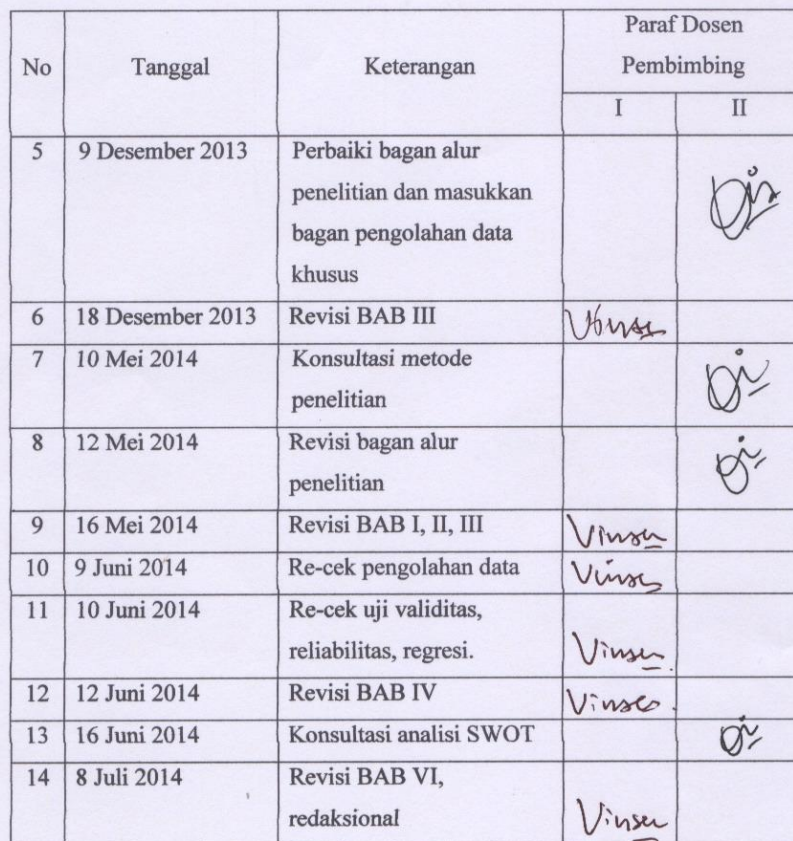 No Tanggal Keterangan Paraf Dosen
Pembimbing
I II
5 9 Desember 2013 Perbaiki bagan alur
penelitian dan masukkan
bagan pengolahan data
khusus
6 18 Desember 2013 Revisi BAB III
7 10 Mei 2014 Konsultasi metode
penelitian
8 12 Mei 2014 Revisi bagan alur
penelitian
9 16 Mei 2014 Revisi BAB I, II, III
10 9 Juni 2014 Re-cek pengolahan data
11 10 Juni 2014 Re-cek uji validitas,
reliabilitas, regresi.
12 12 Juni 2014 Revisi BAB IV
13 16 Juni 2014 Konsultasi analisi SWOT
14 8 Juli 2014 Revisi BAB VI,
redaksional